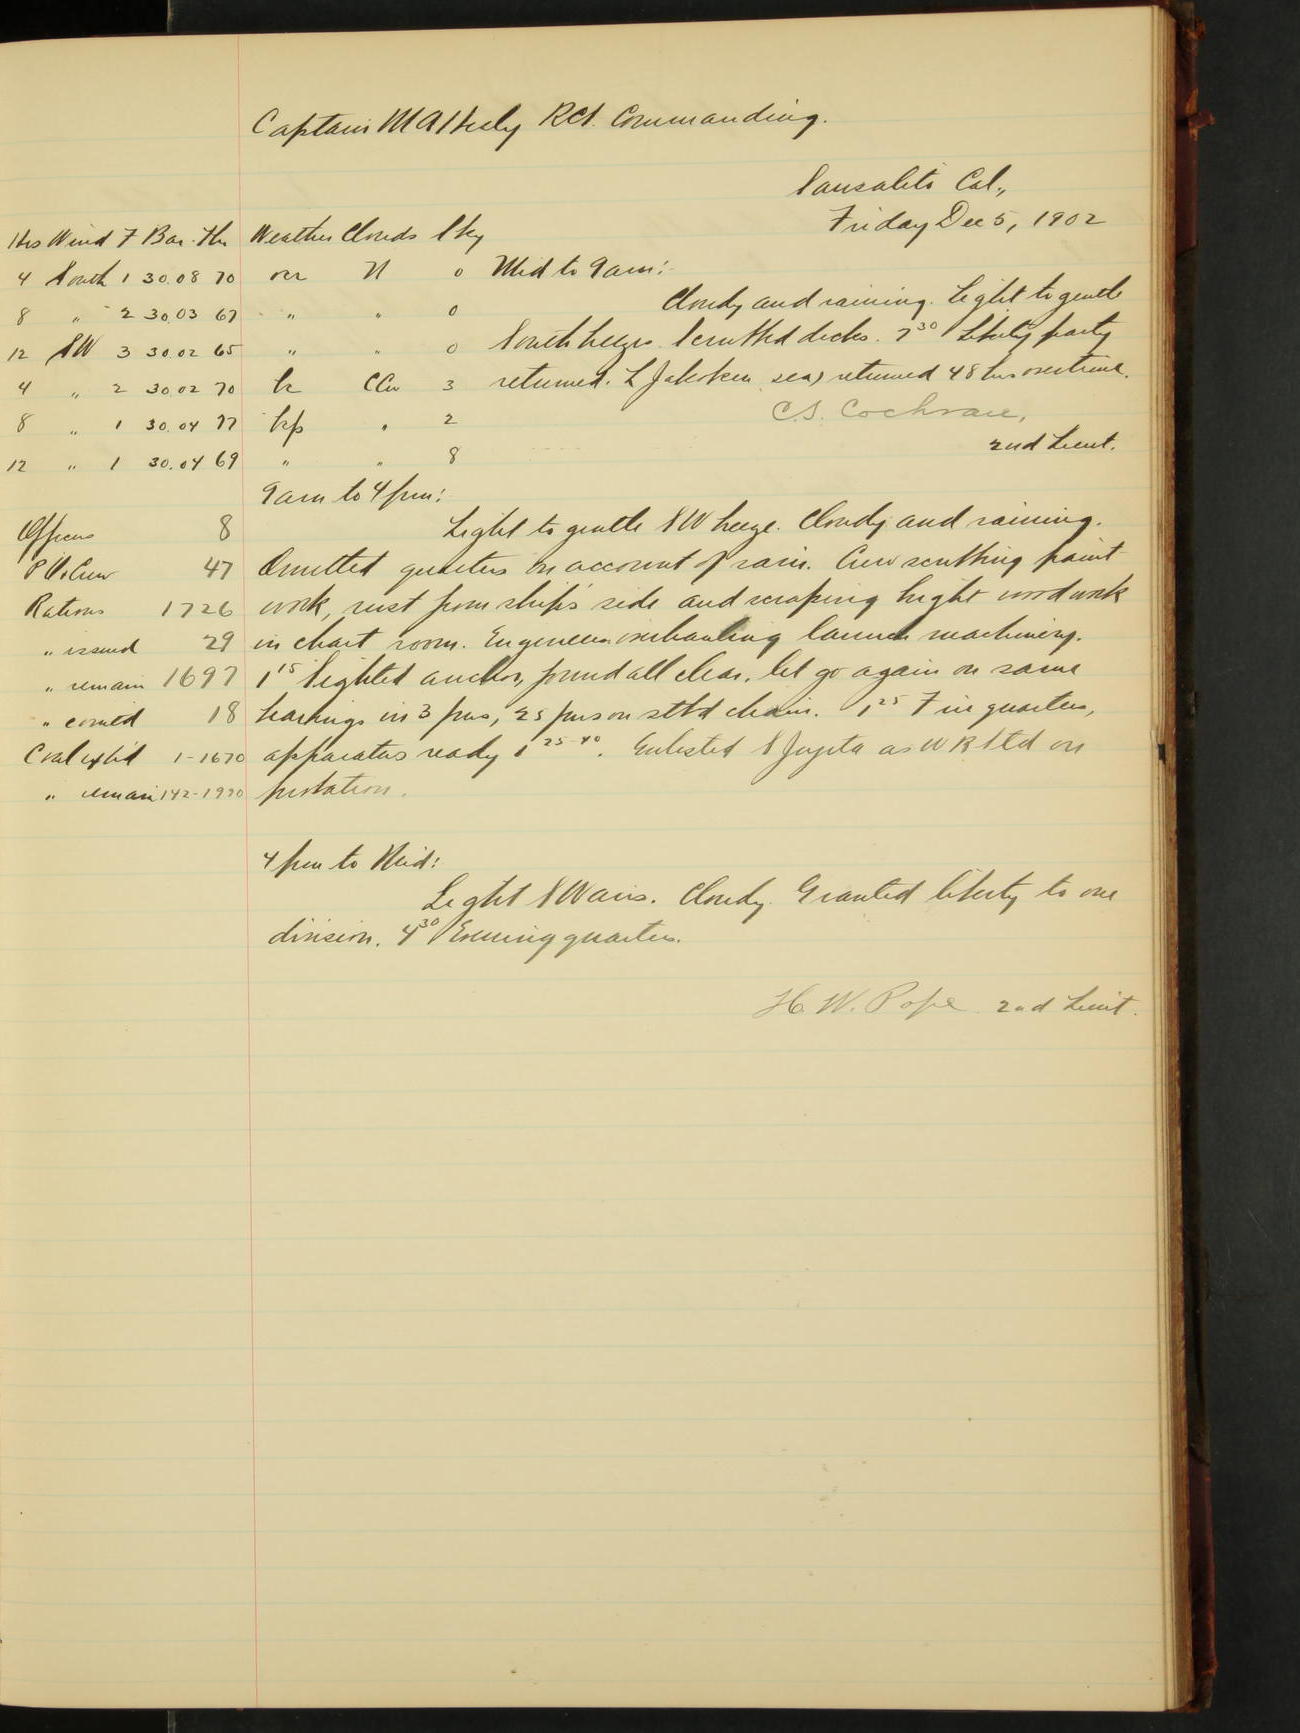 Captain M A Healy RCS. Commanding.
Sausalito Cal.,
Friday Dec 5, 1902
Hrs Wind F Bar. Thr Weather Clouds Sky
4 South 1 30.08 70 or N 0 Mid to 9 am:
8 " 2 30.03 67 " " 0 Cloudy and raining. Light to gentle
12 SW 3 30.02 65 " " 0 South breeze. Scrubbed decks. 7 30 Liberty party
4 " 2 30.02 70 bc CCu 3 returned. L Jakobsen sea) returned 48 hrs overtime.
C.S. Cochran,
8 " 1 30.04 77 bcp " 2
2nd Lieut.
12 " 1 30.04 69 " " 8
9 am to 4 pm:
Officers 8 Light to gentle SW breeze. Cloudy and raining.
P O. Crew 47 Omitted quarters on account of rain. Crew scrubbing paint
Rations 1726 work, rust from ship's side and scraping bright wood work
" issued 29 in chart room. Engineers overhauling launch machinery.
" remain 1697 1 15 Sighted anchor, found all clear, let go again on same
" com'td 18 bearings in 3 fms, 25 fms on stb'd chain. 1 25 Fire quarters,
Coal exp'd 1-1670 apparatus ready 1 25-40. Enlisted S Fujita as W R Std on
" remain 142-1920 probation.
4 pm to Mid:
Light SW airs. Cloudy. Granted liberty to one
division. 4 30 Evening quarters.
H. W. Pope 2nd Lieut.